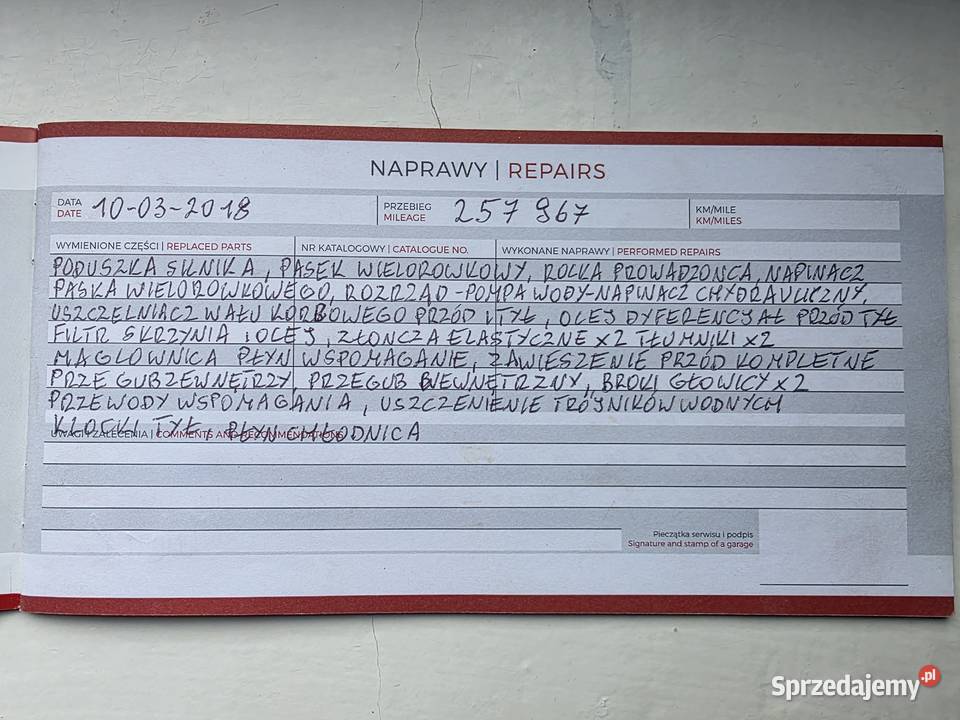 NAPRAWY | REPAIRS
DATA
DATE
10-03-2018
PRZEBIEG
MILEAGE
257 967
KM/MILE
KM/MILES
WYMIENIONE CZĘŚCI | REPLACED PARTS
NR KATALOGOWY | CATALOGUE NO.
WYKONANE NAPRAWY | PERFORMED REPAIRS
PODUSZKA SILNIKA, PASEK WIELOROWKOWY, ROLKA PROWADZONCA, NAPINACZ
PASKA WIELOROWKOWEGO, ROZRZĄD-POMPA WODY-NAPINACZ CHYDRAULICZNY,
USZCZELNIACZ WAŁU KORBOWEGO PRZÓD I TYŁ, OLEJ DYFERENCJAŁ PRZÓD TYŁ
FILTR SKRZYNIA i OLEJ, ZŁONCZA ELASTYCZNE x2 TŁUMNIKI x2
MAGLOWNICA PŁYN WSPOMAGANIE, ZAWIESZENIE PRZÓD KOMPLETNE
PRZEGUB ZEWNĘTRZY, PRZEGUB WEWNĘTRZNY, BROKI GŁOWICY x2
PRZEWODY WSPOMAGANIA, USZCZENIENIE TRÓJNIKÓW WODNYCH
KLOCKI TYŁ, PŁYN CHŁODNICA
UWAGI I ZALECENIA | COMMENTS AND RECOMMENDATIONS
Pieczątka serwisu i podpis
Signature and stamp of a garage
Sprzedajemy.pl